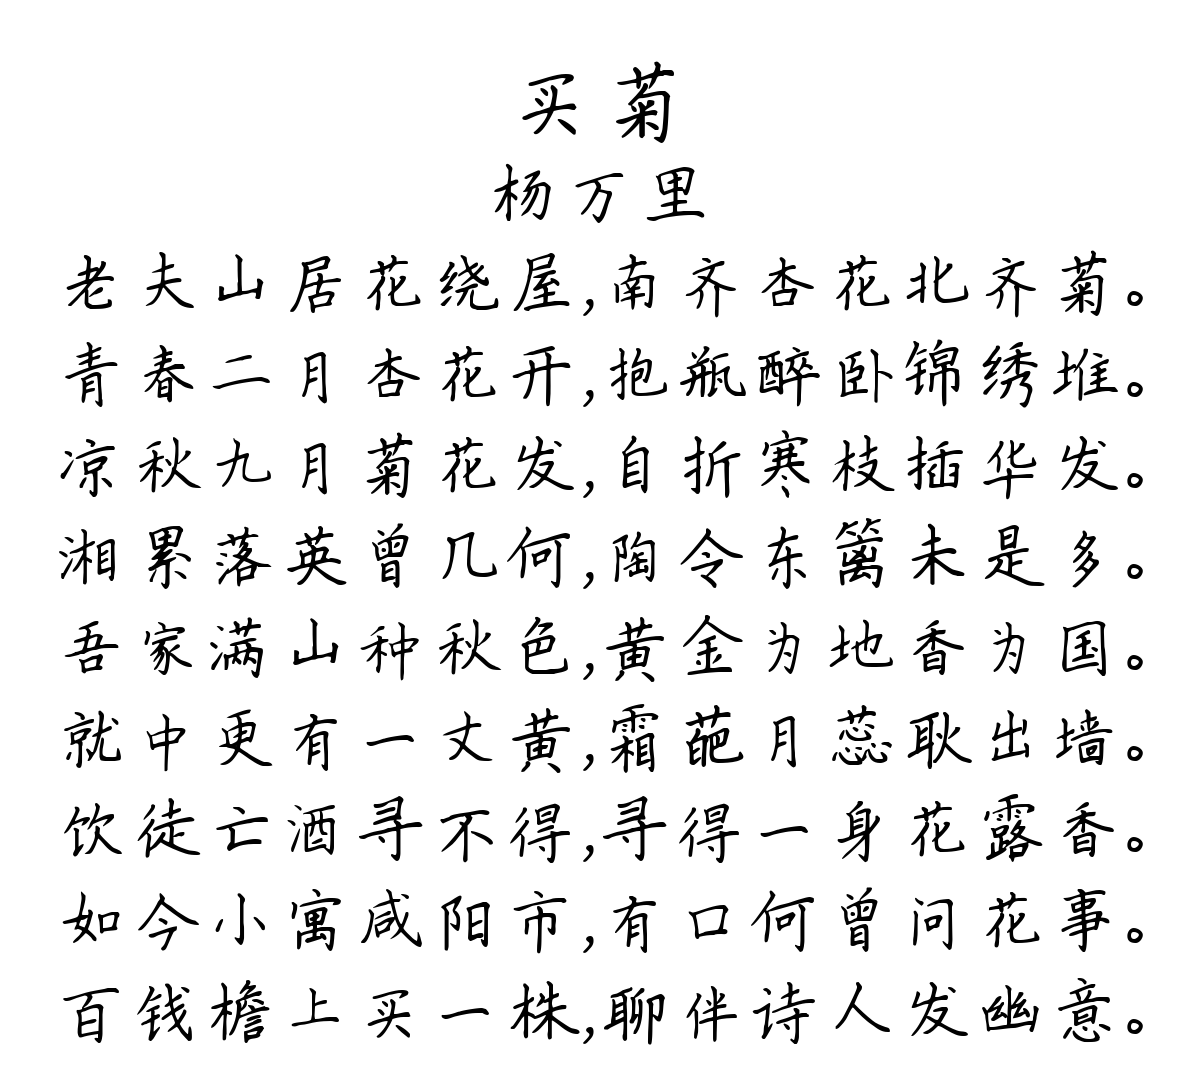 买菊
杨万里
老夫山居花绕屋,南齐杏花北齐菊。
青春二月杏花开,抱瓶醉卧锦绣堆。
凉秋九月菊花发,自折寒枝插华发。
湘累落英曾几何,陶令东篱未是多。
吾家满山种秋色,黄金为地香为国。
就中更有一丈黄,霜葩月蕊耿出墙。
饮徒亡酒寻不得,寻得一身花露香。
如今小寓咸阳市,有口何曾问花事。
百钱檐上买一株,聊伴诗人发幽意。